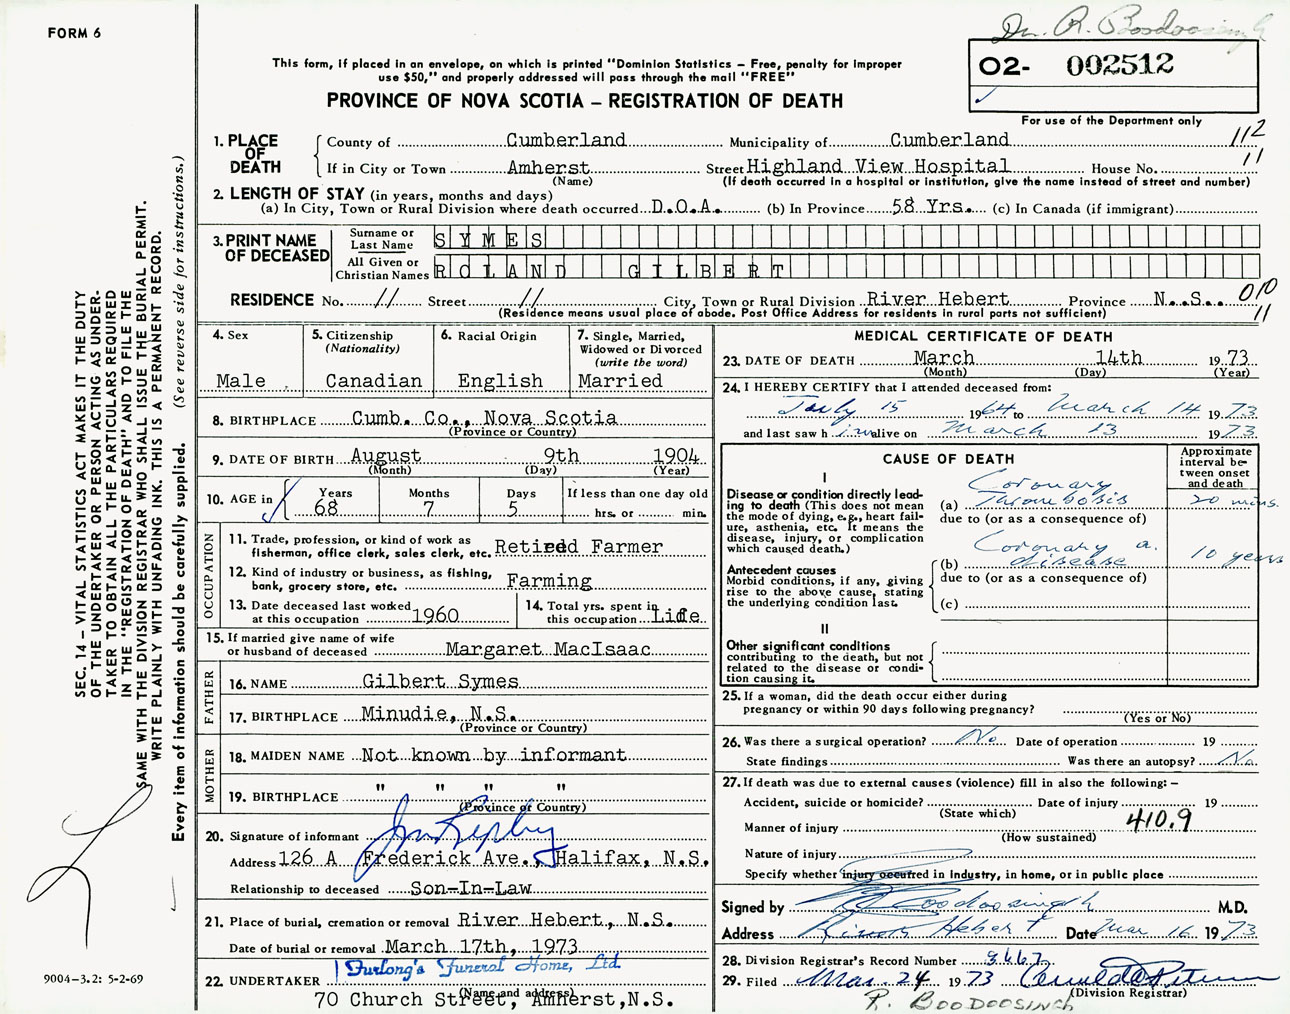 FORM 6
Dr. R. Boodoosingh
This form, if placed in an envelope, on which is printed "Dominion Statistics – Free, penalty for improper
use $50," and properly addressed will pass through the mail "FREE"
PROVINCE OF NOVA SCOTIA – REGISTRATION OF DEATH
02- 002512
For use of the Department only
1. PLACE OF DEATH County of Cumberland Municipality of Cumberland 112
If in City or Town Amherst Street Highland View Hospital House No. 11
(Name) (If death occurred in a hospital or institution, give the name instead of street and number)
2. LENGTH OF STAY (in years, months and days)
(a) In City, Town or Rural Division where death occurred D.O.A. (b) In Province 58 Yrs. (c) In Canada (if immigrant)
3. PRINT NAME OF DECEASED
Surname or Last Name SYMES
All Given or Christian Names ROLAND GILBERT
RESIDENCE No. // Street // City, Town or Rural Division River Hebert Province N.S. 010
(Residence means usual place of abode. Post Office Address for residents in rural parts not sufficient) 11
4. Sex Male
5. Citizenship (Nationality) Canadian
6. Racial Origin English
7. Single, Married, Widowed or Divorced (write the word) Married
8. BIRTHPLACE Cumb. Co., Nova Scotia
(Province or Country)
9. DATE OF BIRTH August 9th 1904
(Month) (Day) (Year)
10. AGE in Years 68 Months 7 Days 5 If less than one day old hrs. or min.
OCCUPATION
11. Trade, profession, or kind of work as
fisherman, office clerk, sales clerk, etc. Retired Farmer
12. Kind of industry or business, as fishing,
bank, grocery store, etc. Farming
13. Date deceased last worked at this occupation 1960
14. Total yrs. spent in this occupation Life
15. If married give name of wife
or husband of deceased Margaret MacIsaac
FATHER
16. NAME Gilbert Symes
17. BIRTHPLACE Minudie, N.S.
(Province or Country)
MOTHER
18. MAIDEN NAME Not known by informant
19. BIRTHPLACE " " " "
(Province or Country)
20. Signature of informant
Address 126 A Frederick Ave., Halifax, N.S.
Relationship to deceased Son-In-Law
21. Place of burial, cremation or removal River Hebert, N.S.
Date of burial or removal March 17th, 1973
Furlong's Funeral Home, Ltd.
22. UNDERTAKER
(Name and address)
70 Church Street, Amherst, N.S.
MEDICAL CERTIFICATE OF DEATH
23. DATE OF DEATH March 14th 1973
(Month) (Day) (Year)
24. I HEREBY CERTIFY that I attended deceased from:
July 15 1964 to March 14 1973
and last saw him alive on March 13 1973
CAUSE OF DEATH
Approximate interval between onset and death
I
Disease or condition directly leading to death (This does not mean
the mode of dying, e.g., heart failure, asthenia, etc. It means the
disease, injury, or complication
which caused death.)
(a) Coronary Thrombosis 20 mins.
due to (or as a consequence of)
Antecedent causes
Morbid conditions, if any, giving
rise to the above cause, stating
the underlying condition last.
(b) Coronary a. disease 10 years
due to (or as a consequence of)
(c)
II
Other significant conditions
contributing to the death, but not
related to the disease or condition causing it.
25. If a woman, did the death occur either during
pregnancy or within 90 days following pregnancy?
(Yes or No)
26. Was there a surgical operation? No Date of operation 19
State findings Was there an autopsy? No
27. If death was due to external causes (violence) fill in also the following: –
Accident, suicide or homicide? Date of injury 19
(State which)
Manner of injury 410.9
(How sustained)
Nature of injury
Specify whether injury occurred in industry, in home, or in public place
Signed by Boodoosingh M.D.
Address River Hebert Date Mar 16 1973
28. Division Registrar's Record Number 3667
29. Filed Mar. 24 1973
(Division Registrar)
R. BOODOOSINGH
SEC. 14 – VITAL STATISTICS ACT MAKES IT THE DUTY
OF THE UNDERTAKER OR PERSON ACTING AS UNDER-
TAKER TO OBTAIN ALL THE PARTICULARS REQUIRED
IN THE "REGISTRATION OF DEATH" AND TO FILE THE
SAME WITH THE DIVISION REGISTRAR WHO SHALL ISSUE THE BURIAL PERMIT.
WRITE PLAINLY WITH UNFADING INK. THIS IS A PERMANENT RECORD.
Every item of information should be carefully supplied. (See reverse side for instructions.)
9004–3.2: 5-2-69